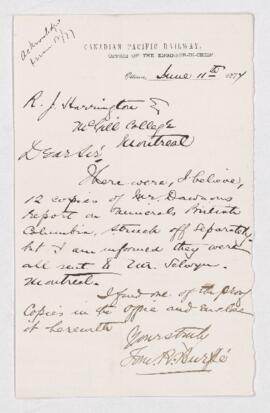 Acknowledged
June 12/77
CANADIAN PACIFIC RAILWAY.
OFFICE OF THE ENGINEER-IN-CHIEF
Ottawa June 11th 1877
R. J. Harrington Esq
McGill College
Montreal
Dear Sir
There were, I believe,
12 copies of Mr. Dawsons
report on Minerals British
Columbia, struck off separately,
but I am informed they were
all sent to Mr. Selwyn.
Montreal.
I find one of the proof
Copies in the Office and enclose
it herewith
Yours truly